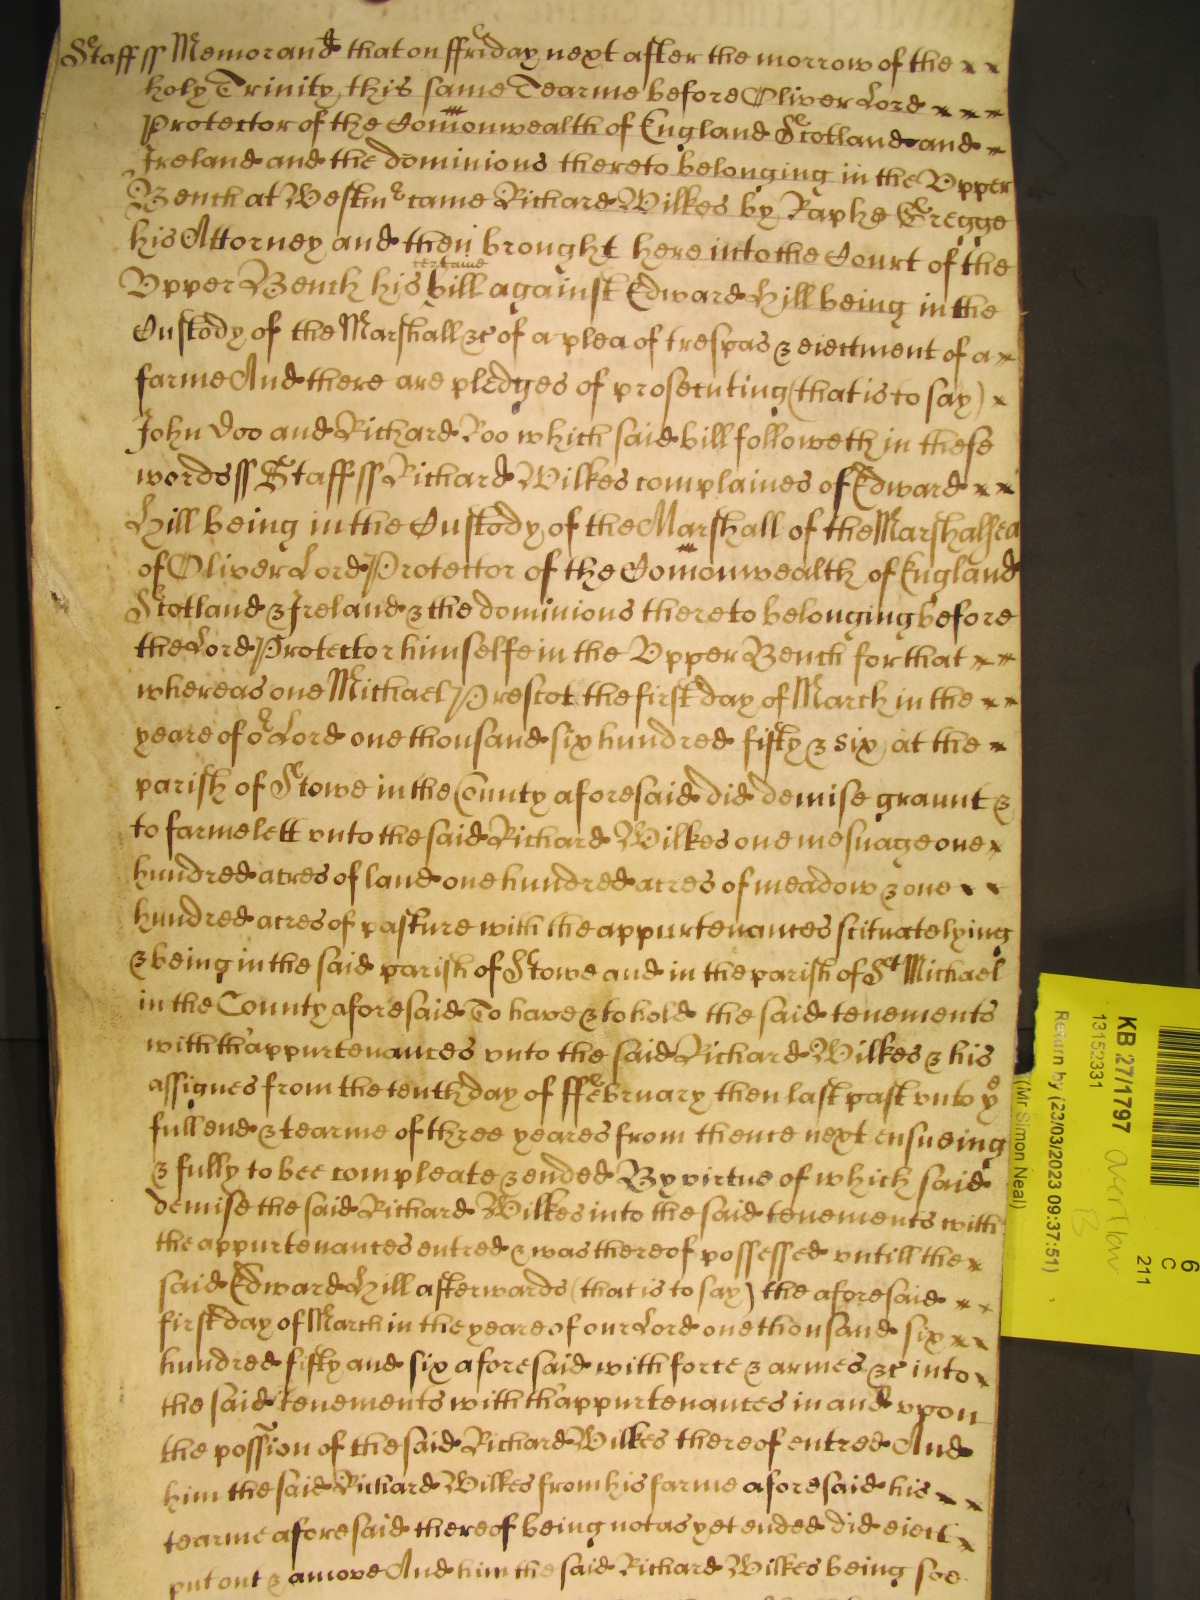 Staff ss Memorand that on ffriday next after the morrow of the
holy Trinity this same Tearme before Oliver Lord
Protector of the Comonwealth of England Scotland and
Ireland and the dominions thereto belonging in the Upper
Bench at Westmr came Richard Wilkes by Raphe Gregge
his Attorney and then brought here into the Court of the
certaine
Upper Bench his bill against Edward Hill being in the
Custody of the Marshall &c of a plea of trespas & eiectment of a
farme And there are pledges of prosecuting (that is to say)
John Doo and Richard Roo which said bill followeth in these
words ss Staff ss Richard Wilkes complaines of Edward
Hill being in the Custody of the Marshall of the Marshalsea
of Oliver Lord Protector of the Comonwealth of England
Scotland & Ireland & the dominions thereto belonging before
the Lord Protector himselfe in the Upper Bench for that
whereas one Michael Prescot the first day of March in the
yeare of or Lord one thousand six hundred fifty & six at the
parish of Stowe in the County aforesaid did demise graunt &
to farme lett vnto the said Richard Wilkes one mesuage one
hundred acres of land one hundred acres of meadow & one
hundred acres of pasture with the appurtenances scituate lying
& being in the said parish of Stowe and in the parish of St Michael
in the County aforesaid To have & to hold the said tenements
with th'appurtenances vnto the said Richard Wilkes & his
assignes from the tenth day of ffebruary then last past vnto ye
full end & tearme of three yeares from thence next ensueing
& fully to bee compleate & ended By virtue of which said
demise the said Richard Wilkes into the said tenements with
the appurtenances entred & was thereof possessed vntill the
said Edward Hill afterwards (that is to say) the aforesaid
first day of March in the yeare of our Lord one thousand six
hundred fifty and six aforesaid with force & armes &c into
the said tenements with th'appurtenances in and vpon
the possion of the said Richard Wilkes thereof entred And
him the said Richard Wilkes from his farme aforesaid his
tearme aforesaid thereof being not as yet ended did eiect
put out & amove And him the said Richard Wilkes being soe
KB 27/1797
13152331
Return by (23/03/2023 09:37:51)
(Mr Simon Neal)
overflow
B
6
C
211